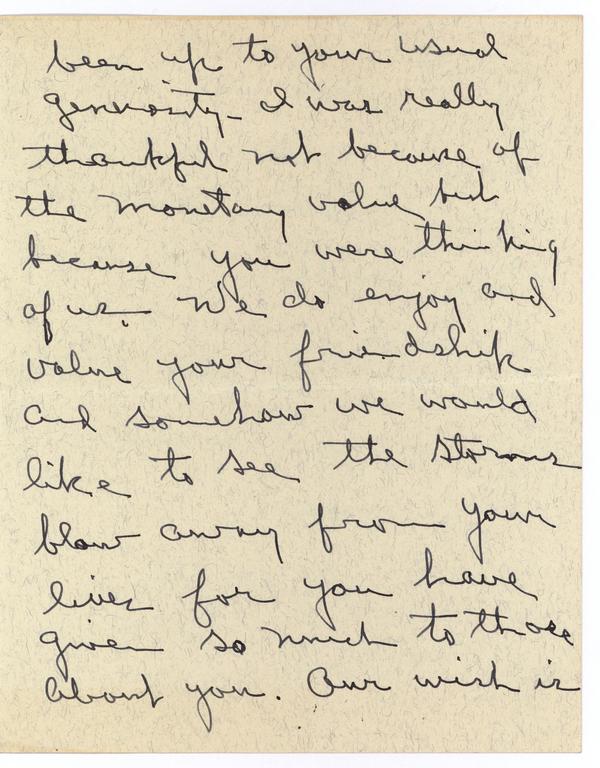 been up to your usual
generosity - I was really
thankful not because of
the monetary value but
because you were thinking
of us. We do enjoy and
value your friendship
and somehow we would
like to see the storms
blow away from your
lives for you have
given so much to those
about you. Our wish is